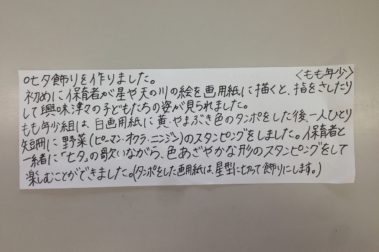 七夕飾りを作りました。 〈もも年少〉
初めに保育者が星や天の川の絵を画用紙に描くと、指をさしたり
して興味津々の子どもたちの姿が見られました。
もも年少組は、白画用紙に黄、やまぶき色のタンポをした後一人ひとり
短冊に野菜(ピーマン・オクラ・ニンジン)のスタンピングをしました。保育者と
一緒に「七夕」の歌いながら、色あざやかな形のスタンピングをして
楽しむことができました。(タンポをした画用紙は、星型に切って飾りにします。)